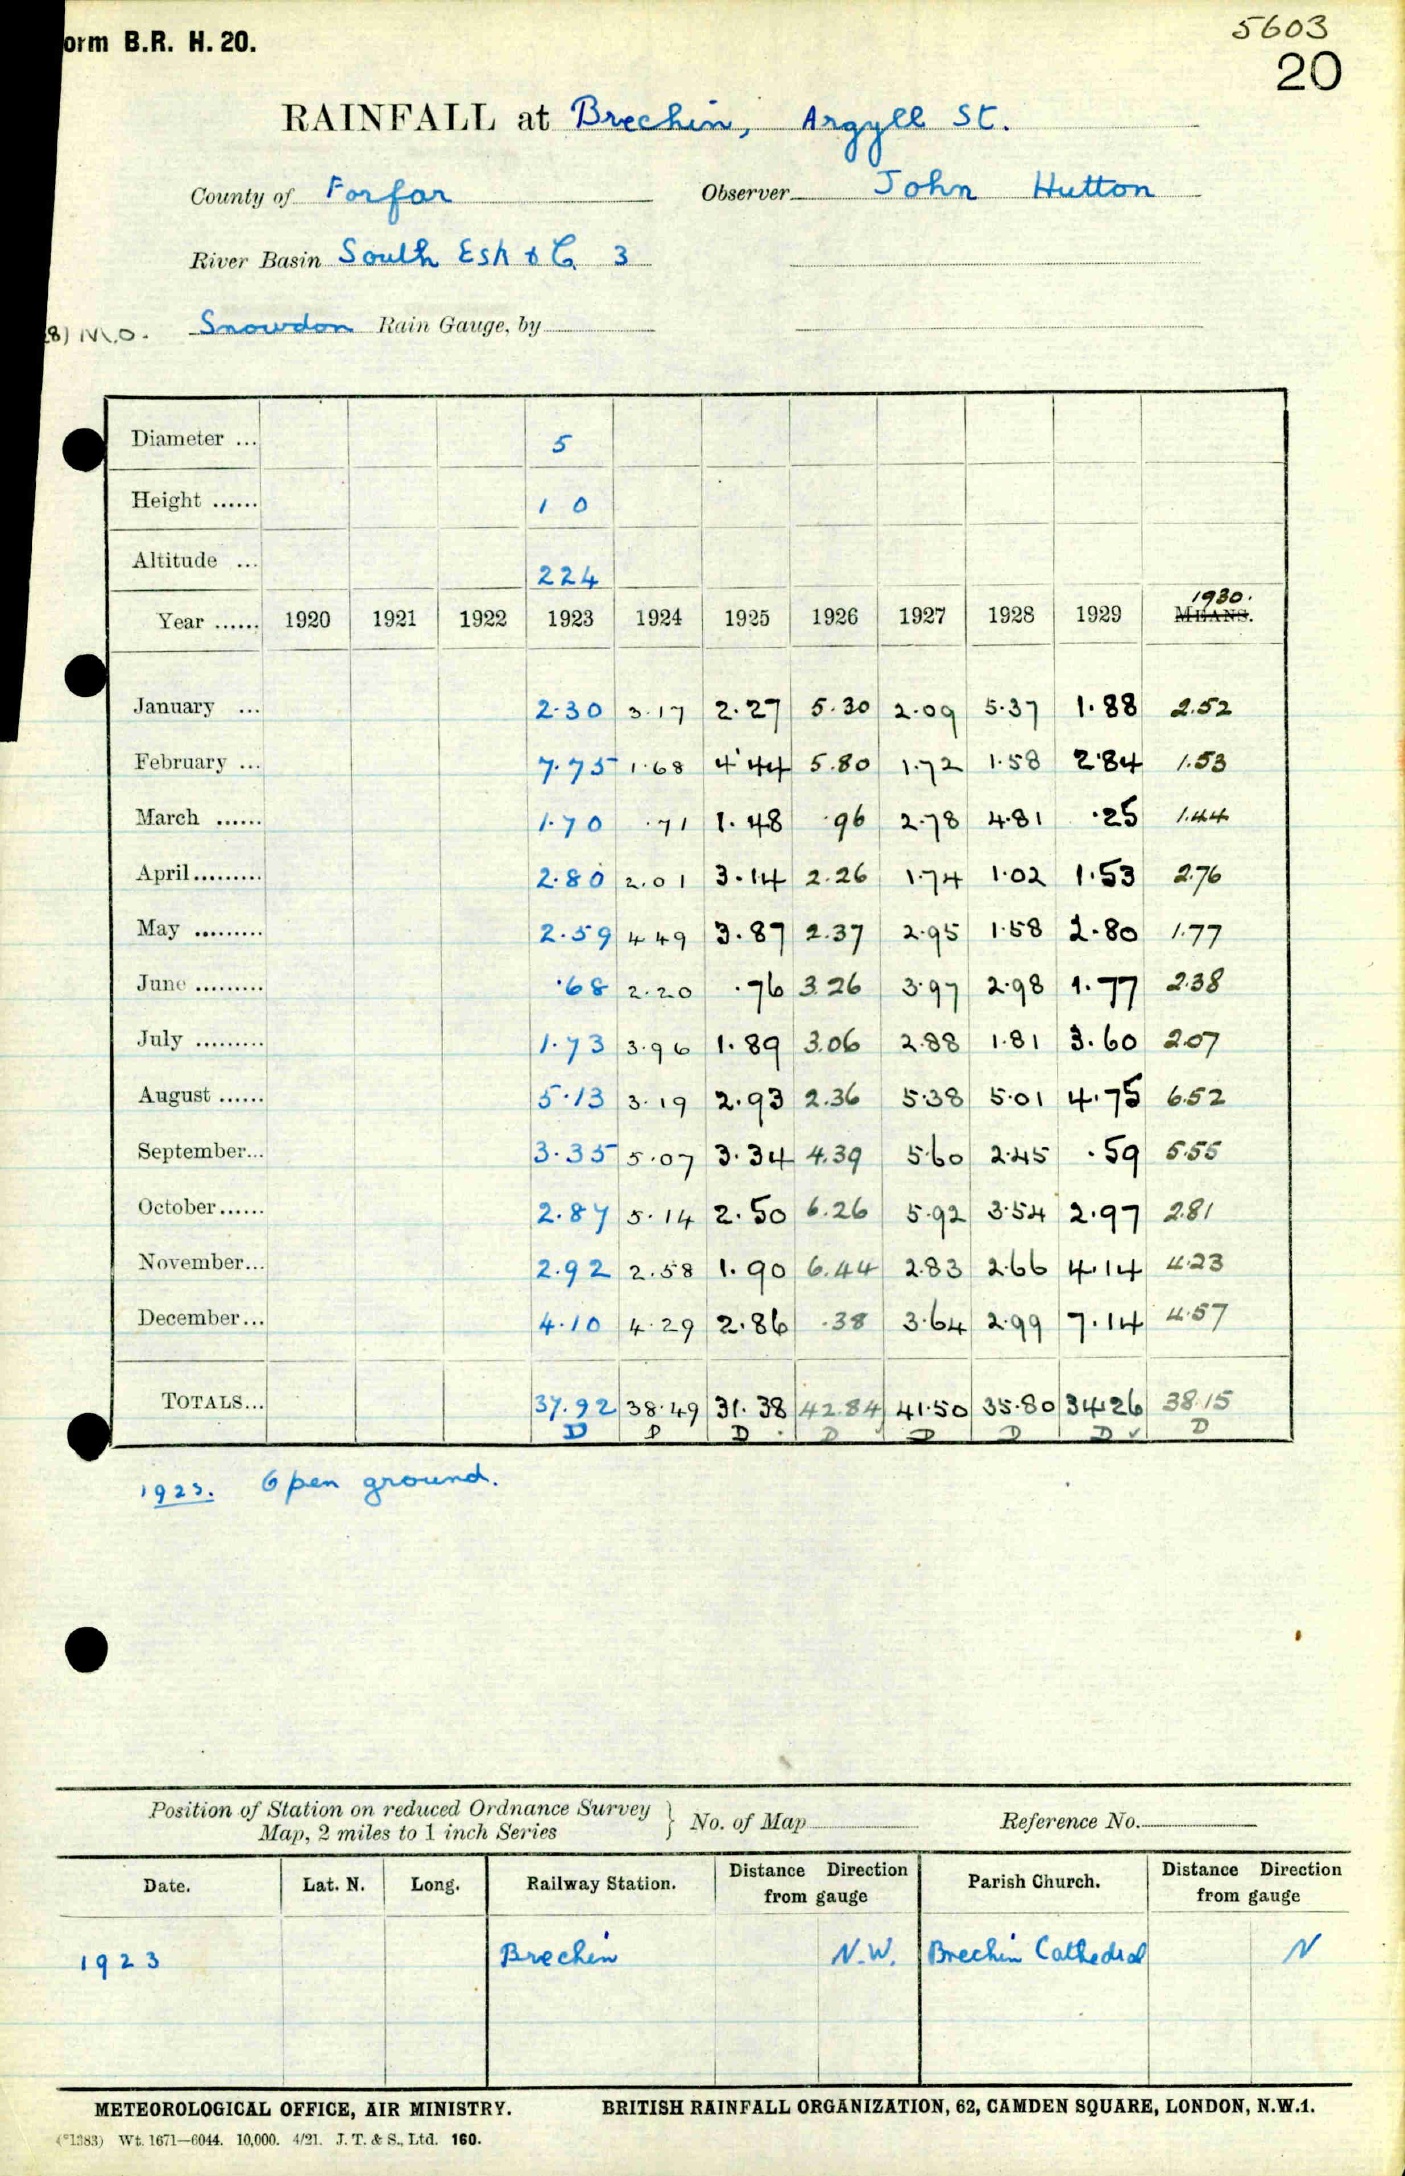 orm B.R. H. 20.
5603
20
RAINFALL at Brechin, Argyll St.
County of Forfar Observer John Hutton
River Basin South Esk & C. 3
8) M.O. Snowdon Rain Gauge, by
Diameter ... 5
Height ...... 1 0
Altitude ... 224
1930.
Year ...... 1920 1921 1922 1923 1924 1925 1926 1927 1928 1929 MEANS.
January ... 2.30 3.17 2.27 5.30 2.09 5.37 1.88 2.52
February ... 7.75 1.68 4.44 5.80 1.72 1.58 2.84 1.53
March ...... 1.70 .71 1.48 .96 2.78 4.81 .25 1.44
April......... 2.80 2.01 3.14 2.26 1.74 1.02 1.53 2.76
May ......... 2.59 4 49 3.87 2.37 2.95 1.58 2.80 1.77
June ......... .68 2.20 .76 3.26 3.97 2.98 1.77 2.38
July ......... 1.73 3.96 1.89 3.06 2.88 1.81 3.60 2.07
August ...... 5.13 3.19 2.93 2.36 5.38 5.01 4.75 6.52
September... 3.35 5.07 3.34 4.39 5.60 2.45 .59 5.55
October...... 2.87 5.14 2.50 6.26 5.92 3.54 2.97 2.81
November... 2.92 2.58 1.90 6.44 2.83 2.66 4.14 4.23
December... 4.10 4.29 2.86 .38 3.64 2.99 7.14 4.57
TOTALS... 37.92 38.49 31.38 42.84 41.50 35.80 34.26 38.15
D D D D D D D D
1923. Open ground.
Position of Station on reduced Ordnance Survey
Map, 2 miles to 1 inch Series } No. of Map Reference No.
Date. Lat. N. Long. Railway Station. Distance Direction from gauge Parish Church. Distance Direction from gauge
1923 Brechin N.W. Brechin Cathedral N
METEOROLOGICAL OFFICE, AIR MINISTRY. BRITISH RAINFALL ORGANIZATION, 62, CAMDEN SQUARE, LONDON, N.W.1.
(*1383) Wt. 1671—6044. 10,000. 4/21. J. T. & S., Ltd. 160.